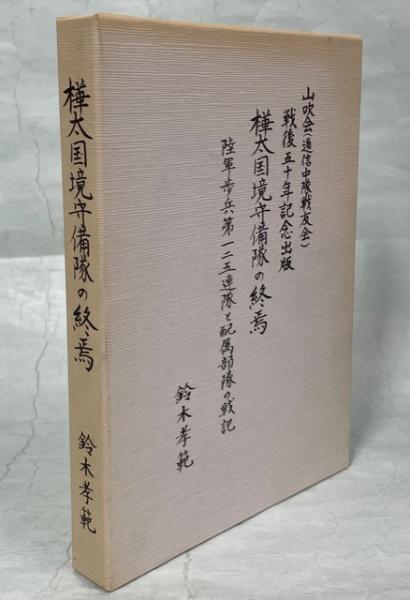 山吹会(通信中隊戦友会)
戦後五十年記念出版
樺太国境守備隊の終焉
陸軍歩兵第一二五連隊と配属部隊の戦記
鈴木孝範
樺太国境守備隊の終焉
鈴木孝範